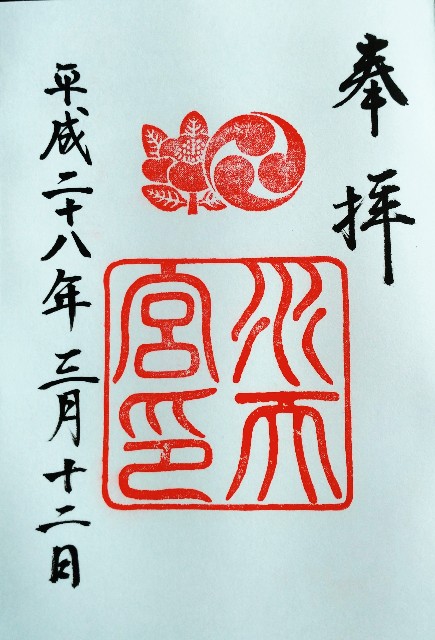 奉拝
水天
宮印
平成二十八年三月十二日